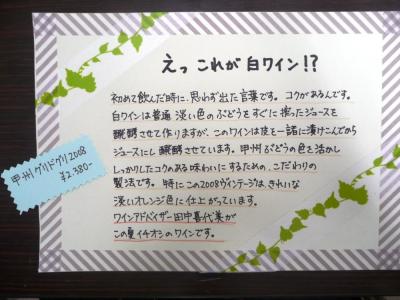 えっ これが 白ワイン!?
初めて飲んだ時に、思わず出た言葉です。コクがあるんです。
白ワインは普通 淡い色のぶどうをすぐに搾ったジュースを
醗酵させて作りますが、このワインは皮を一緒に漬けこんでから
ジュースにし 醗酵させています。甲州ぶどうの色を活かし
しっかりしたコクのある味わいにするための、こだわりの
製法です。特にこの2008ヴィンテージは、きれいな
淡いオレンジ色に仕上がっています。
ワインアドバイザー田中喜代美が
この夏イチオシのワインです。
甲州グリドグリ2008
¥2,380-